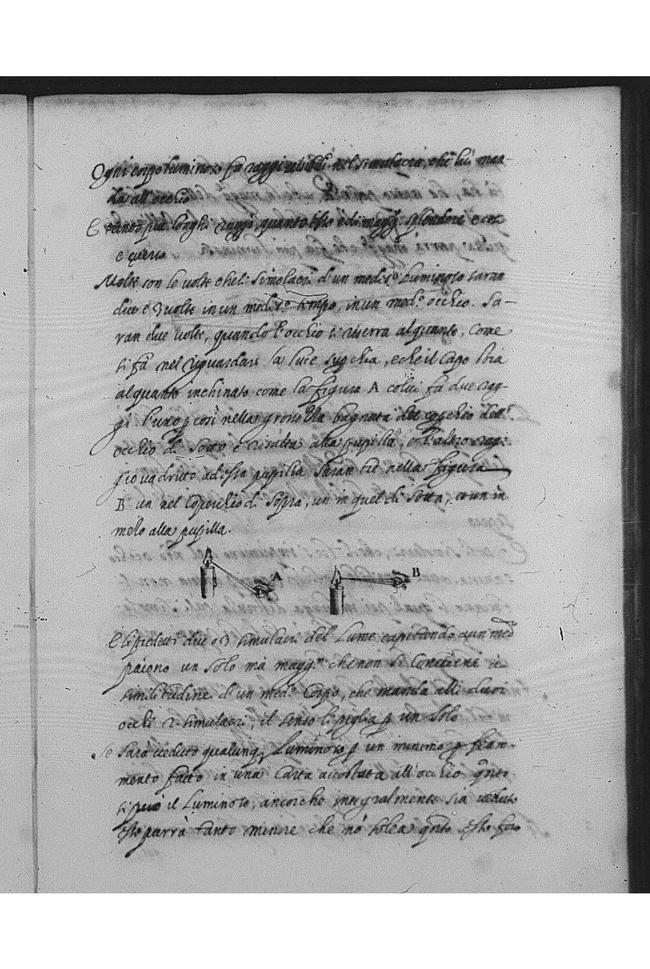 Ogni corpo luminoso fa raggi visibili nel simulacro, che lui man-
da all'occhio
E tanto più longhi i raggi, quanto esso è di magg.r splendore e con-
e verso
Molte son le volte che li simolacri d'un med.mo Luminoso saran
due e 3 volte in un med.mo tempo, in un med.o occhio. Sa-
ran due volte, quando l'occhio si riserra alquanto, come
si fa nel riguardare la luce, e che il capo stia
alquanto inchinato come la figura A colui fa due rag-
gi l'uno nella grossezza bagnata del coperchio dell'
occhio di sotto e risulta alla pupilla, e l'altro rag-
gio va dritto ad essa pupilla Saran tre nella figura
B un nel coperchio di sopra, un in quel di sotto, et un in
mezo alla pupilla.
A B
E li predetti due o 3 simulacri del Lume capitando a un med
paiono un solo ma magg.r che non si conviene
similitudine d'un med.o Corpo, che manda alli duoi
occhi 2 simulacri, il senso li piglia p un solo
Se sara veduto qualunq Luminoso p un minimo fora-
mento fatto in una carta accostata all'occhio qnto
si può il Luminoso, ancorche integralmente sia veduto
esso parrà tanto minore che nō solea qnto esso foro